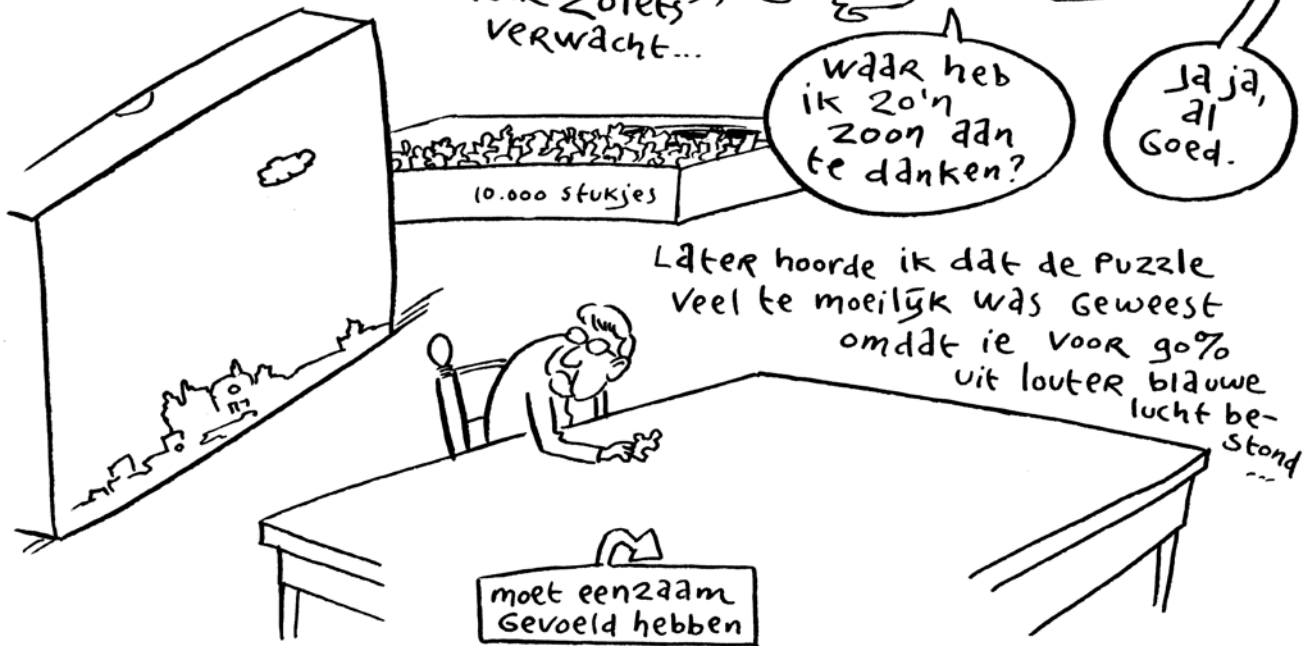 zoiets
verwacht...
waar heb
ik zo'n
zoon aan
te danken?
Ja ja,
al
goed.
10.000 stukjes
Later hoorde ik dat de puzzle
veel te moeilijk was geweest
omdat ie voor 90%
uit louter blauwe
lucht be-
stond
...
moet eenzaam
gevoeld hebben